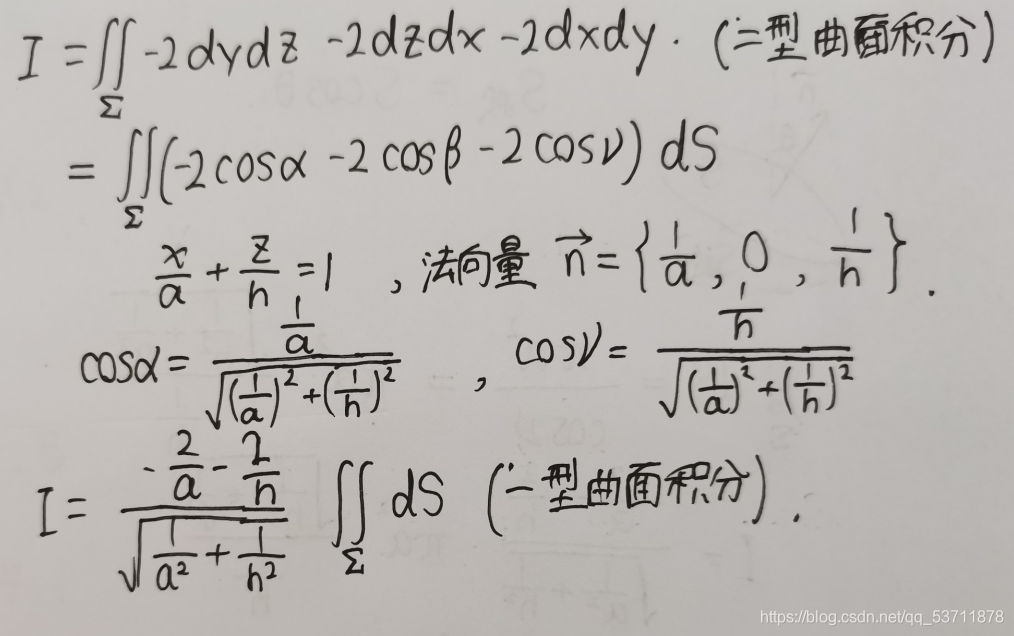 I = ∬_Σ -2dydz -2dzdx -2dxdy. (二型曲面积分)
= ∬_Σ (-2cosα -2cosβ -2cosν) dS
x/a + z/h = 1 , 法向量 n⃗ = {1/a, 0, 1/h}.
cosα = (1/a)/√((1/a)²+(1/h)²) , cosν = (1/h)/√((1/a)²+(1/h)²)
I = (-2/a - 2/h)/√(1/a² + 1/h²) ∬_Σ dS (一型曲面积分).
https://blog.csdn.net/qq_53711878